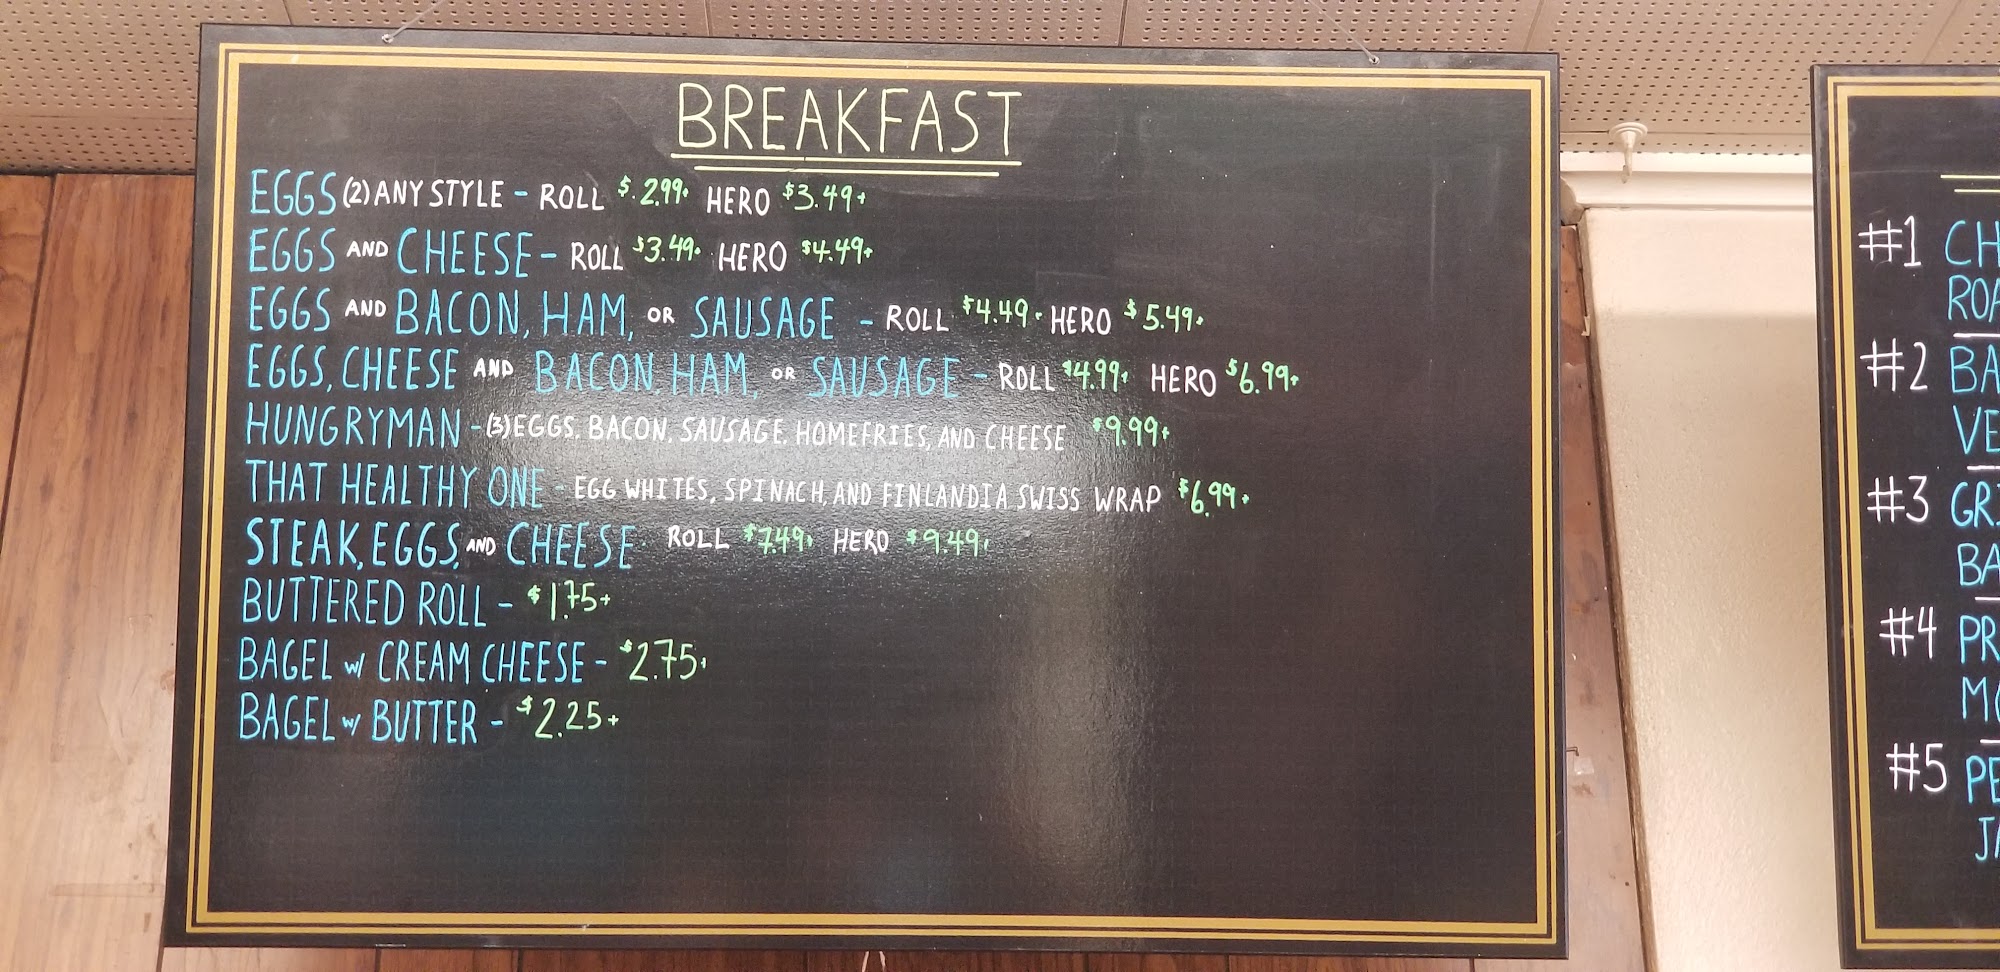 BREAKFAST
EGGS (2) ANY STYLE - ROLL $.299+ HERO $3.49+
EGGS AND CHEESE - ROLL $3.49+ HERO $4.49+
EGGS AND BACON, HAM, OR SAUSAGE - ROLL $4.49+ HERO $5.49+
EGGS, CHEESE AND BACON, HAM, OR SAUSAGE - ROLL $4.99+ HERO $6.99+
HUNGRYMAN - (3) EGGS, BACON, SAUSAGE, HOMEFRIES, AND CHEESE $9.99+
THAT HEALTHY ONE - EGG WHITES, SPINACH, AND FINLANDIA SWISS WRAP $6.99+
STEAK, EGGS, AND CHEESE ROLL $7.49+ HERO $9.49+
BUTTERED ROLL - $1.75+
BAGEL w/ CREAM CHEESE - $2.75+
BAGEL w/ BUTTER - $2.25+
#1 CH
ROA
#2 BA
VE
#3 GRI
BA
#4 PR
MO
#5 PE
JA